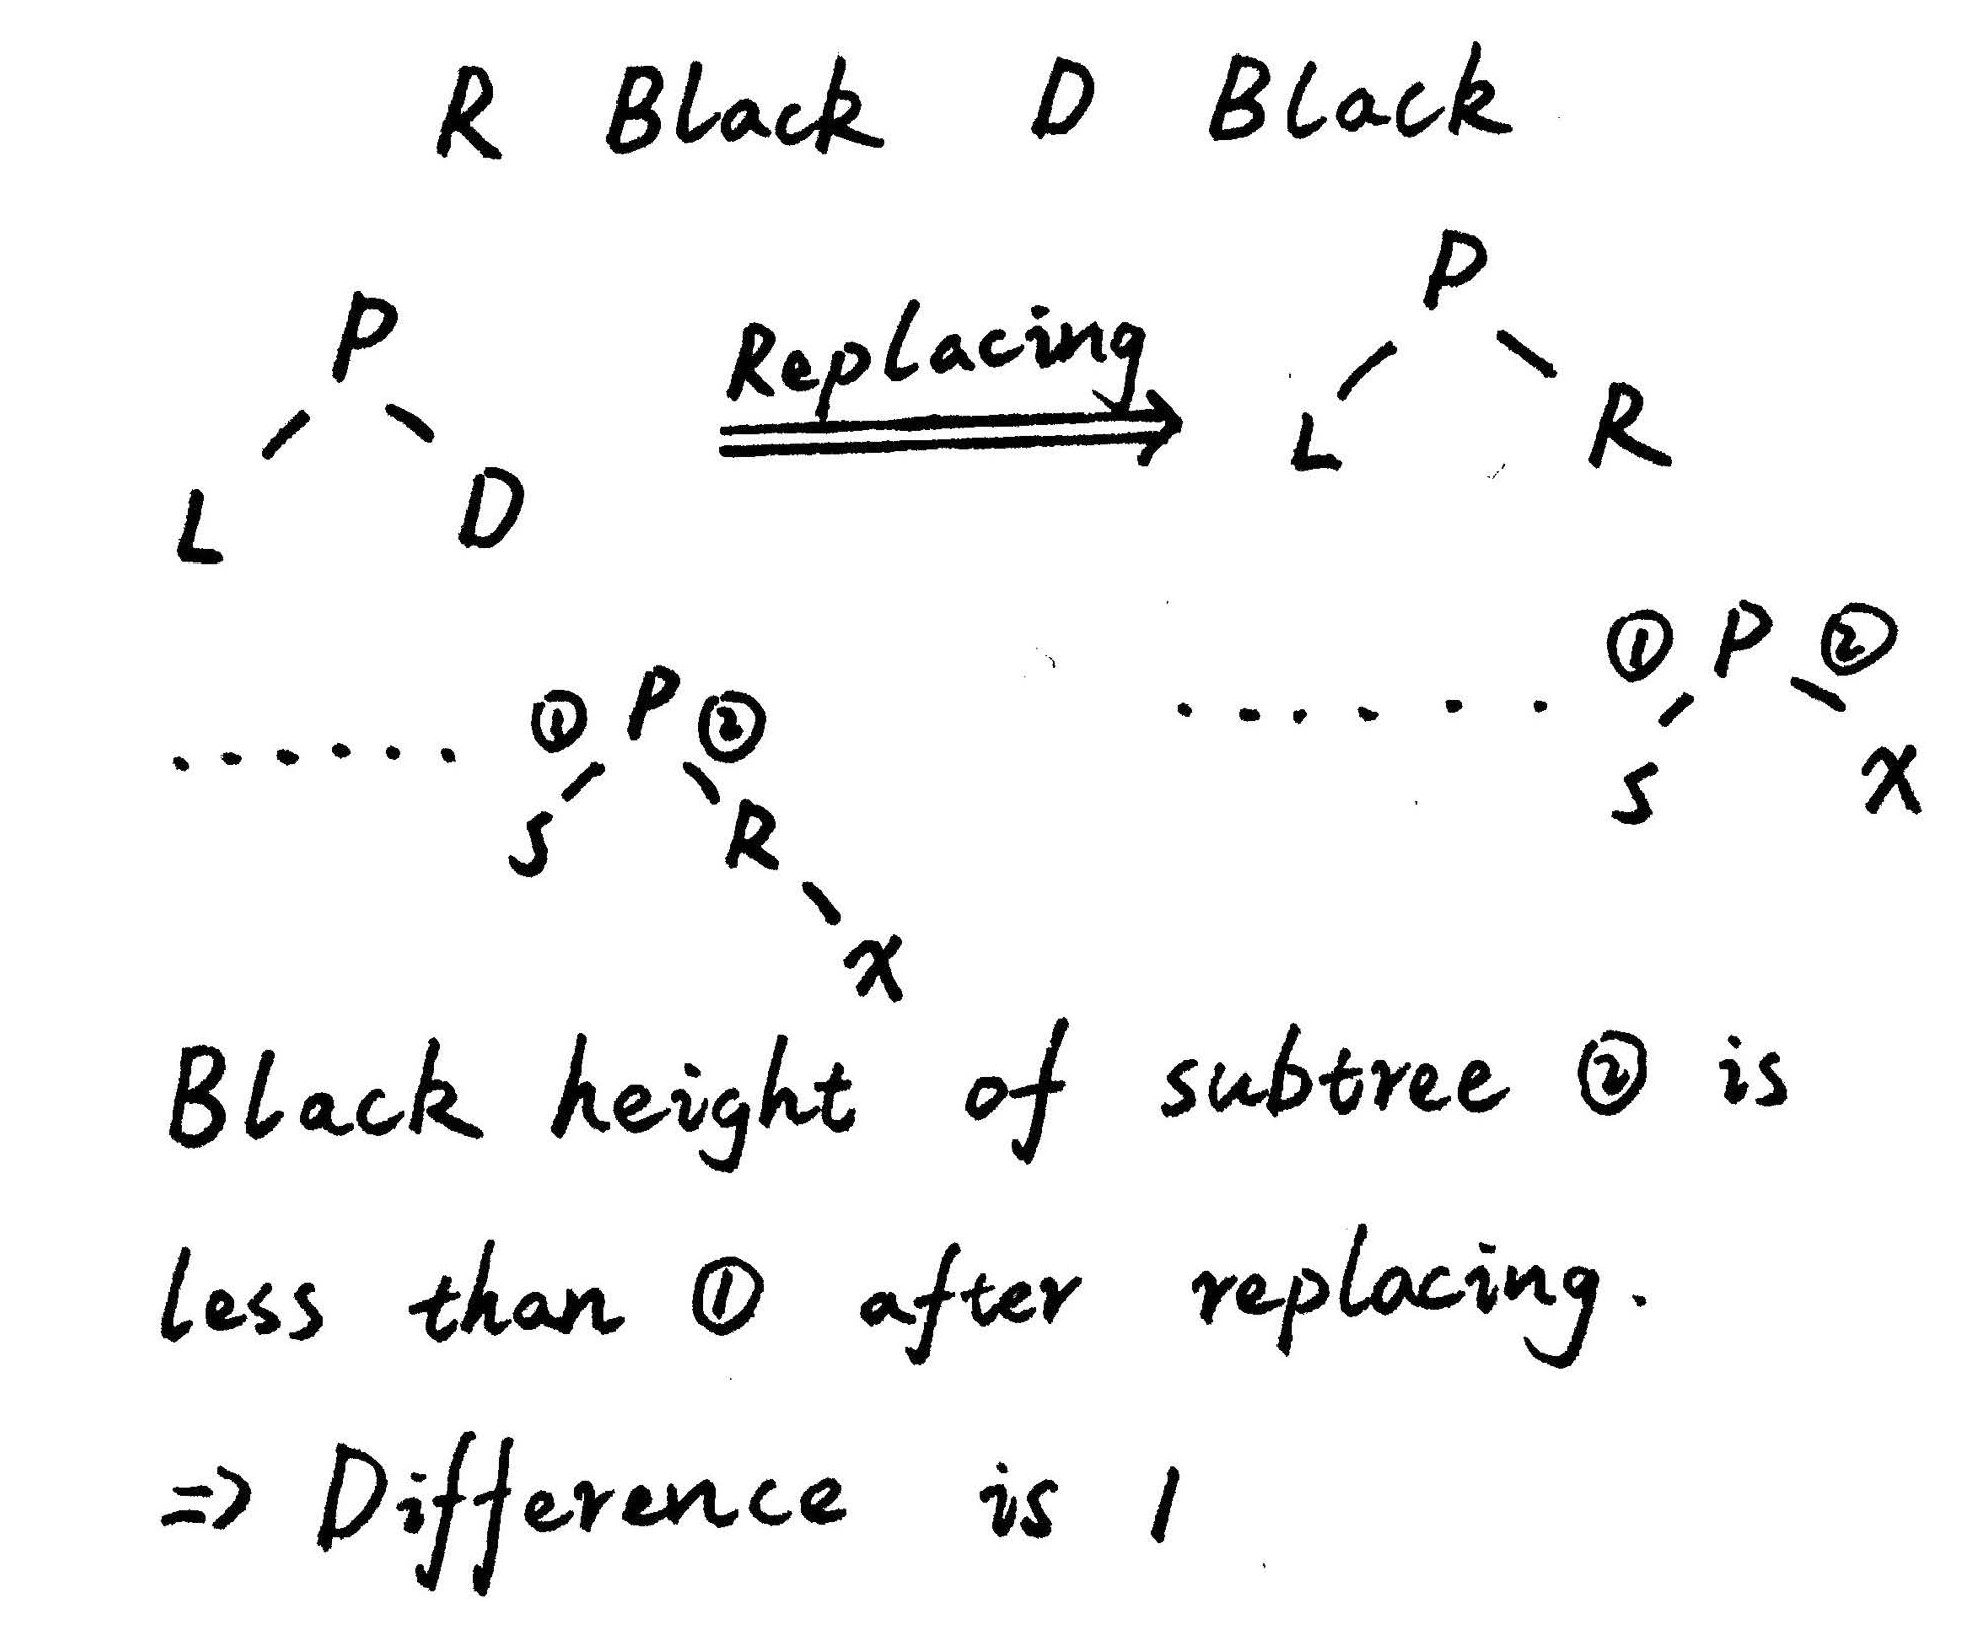 R Black D Black
P
L D
Replacing
P
L R
...... ① P ②
S R
X
...... ① P ②
S X
Black height of subtree ② is
less than ① after replacing.
=> Difference is 1